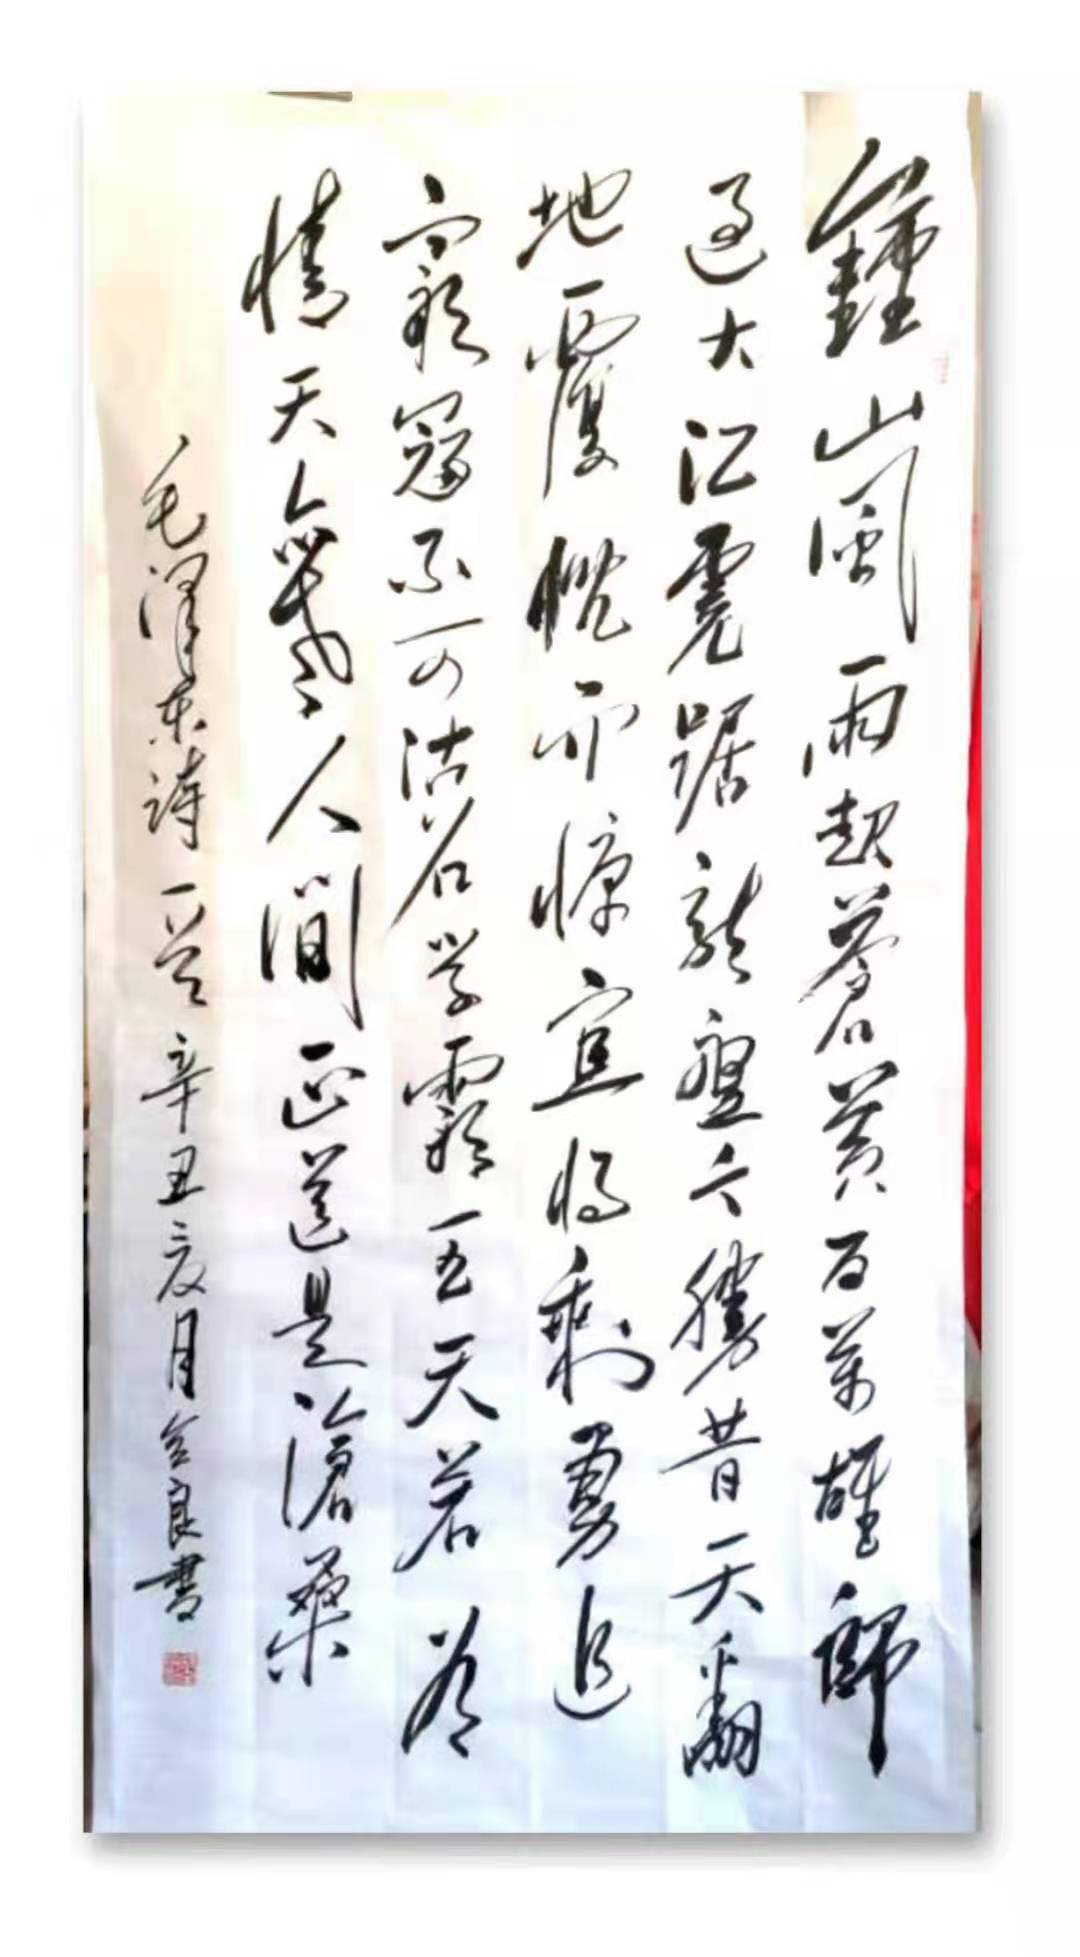 鍾山風雨起蒼黄百萬雄師
過大江虎踞龍盤今勝昔天翻
地覆慨而慷宜將剩勇追
窮寇不可沽名学霸王天若有
情天亦老人間正道是滄桑
毛澤东詩一首 辛丑夏月 良書